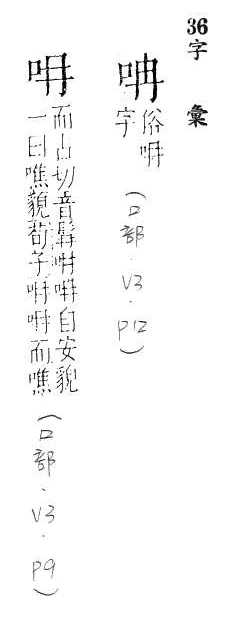 36字彙
呥
俗呥
字
(口部.V3.P12)
呥
而占切音髯呥呥自安貌
一曰噍貌荀子呥呥而噍
(口部.V3.P9)